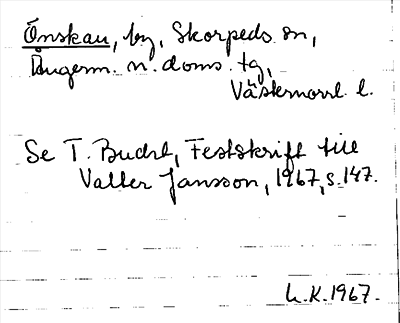 Önskau, by, Skorpeds sn,
Ångerm. n. doms. tg,
Västernorrl. l.
Se T. Budrl, Festskrift till
Valter Jansson, 1967, s. 147.
L.K. 1967.